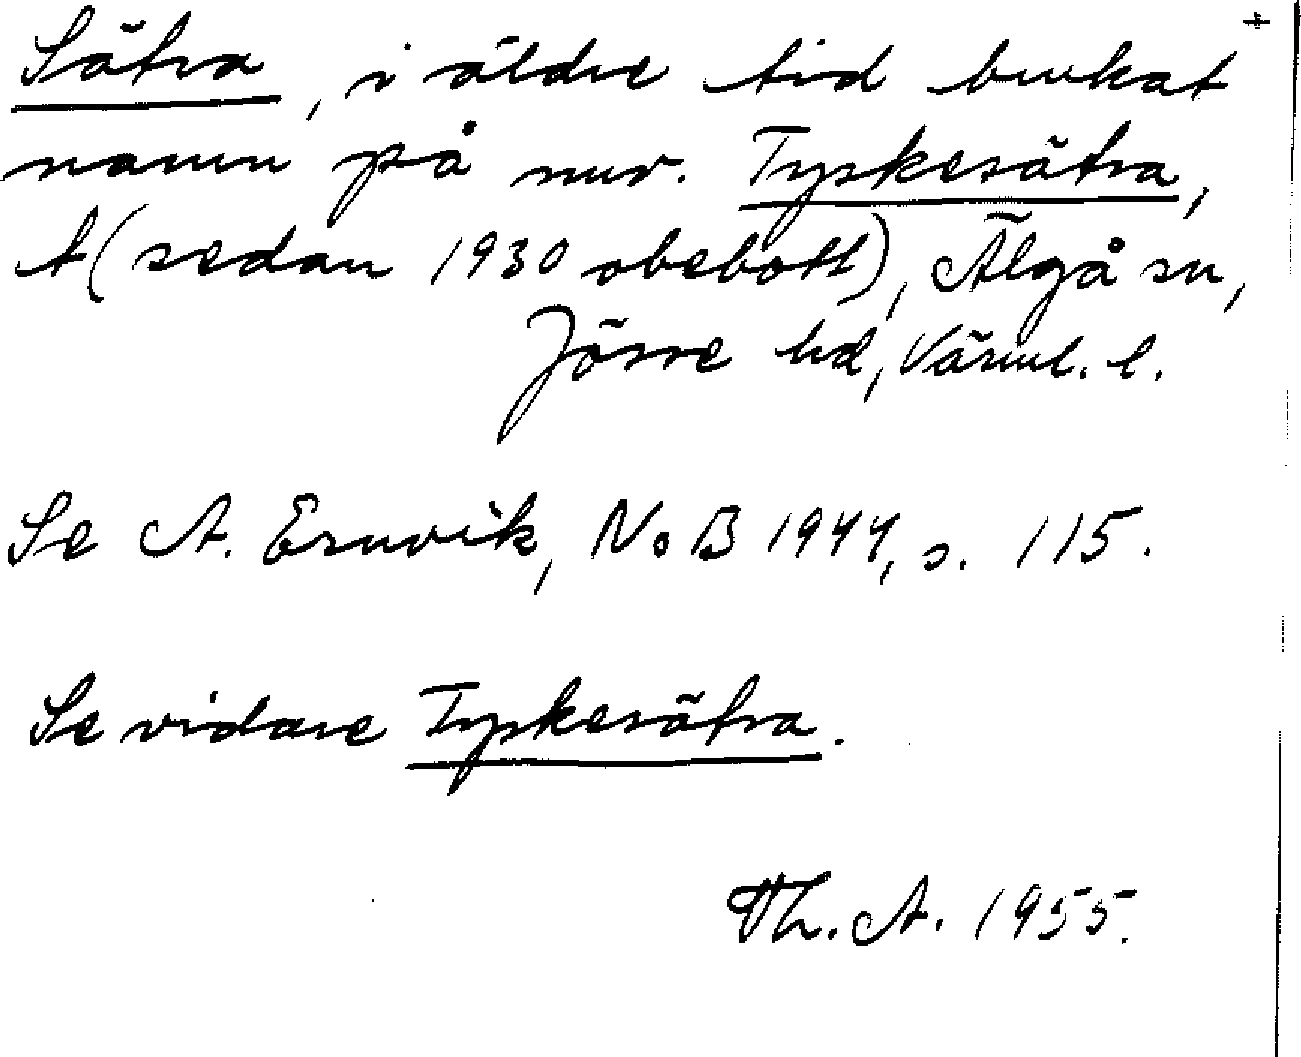 +
Sätra, i äldre tid brukat
namn på nuv. Tyskesätra,
t (sedan 1930 obebott), Älgå sn,
Jösse hd, Värml. l.
Se A. Ernvik, NoB 1944, s. 115.
Se vidare Tyskesätra.
Th. A. 1955.